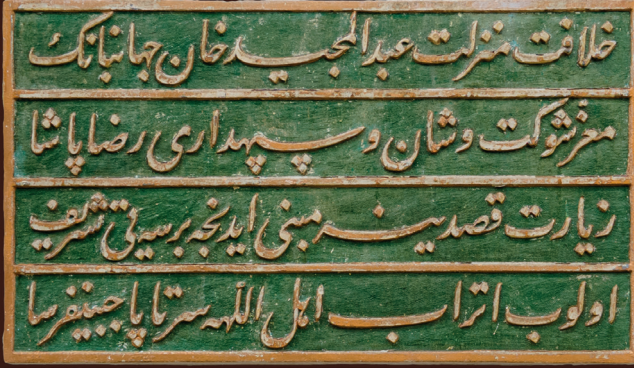 خلافت منزلت عبدالمجيد خان جهانبانك
شوكت و شان و سپهدارى رضا پاشا
زيارت قصدينه مبنى ايدنجه برسه يى تشريف
اولوب اتراب اهل اللهه سرتاپا جبينفرسا